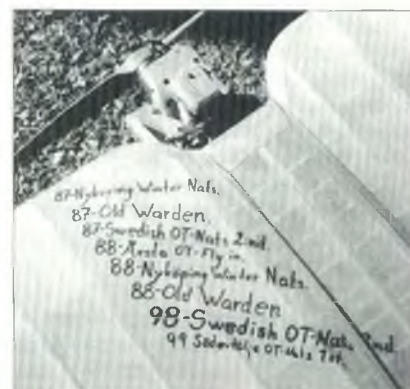 87-Nyköping Winter Nats.
87-Old Warden.
87-Swedish OT-Nats 2:nd.
88-Årsta OT-Fly in.
88-Nyköping Winter Nats.
88-Old Warden
98-Swedish OT-Nats 2nd
99 Södertälje OT-